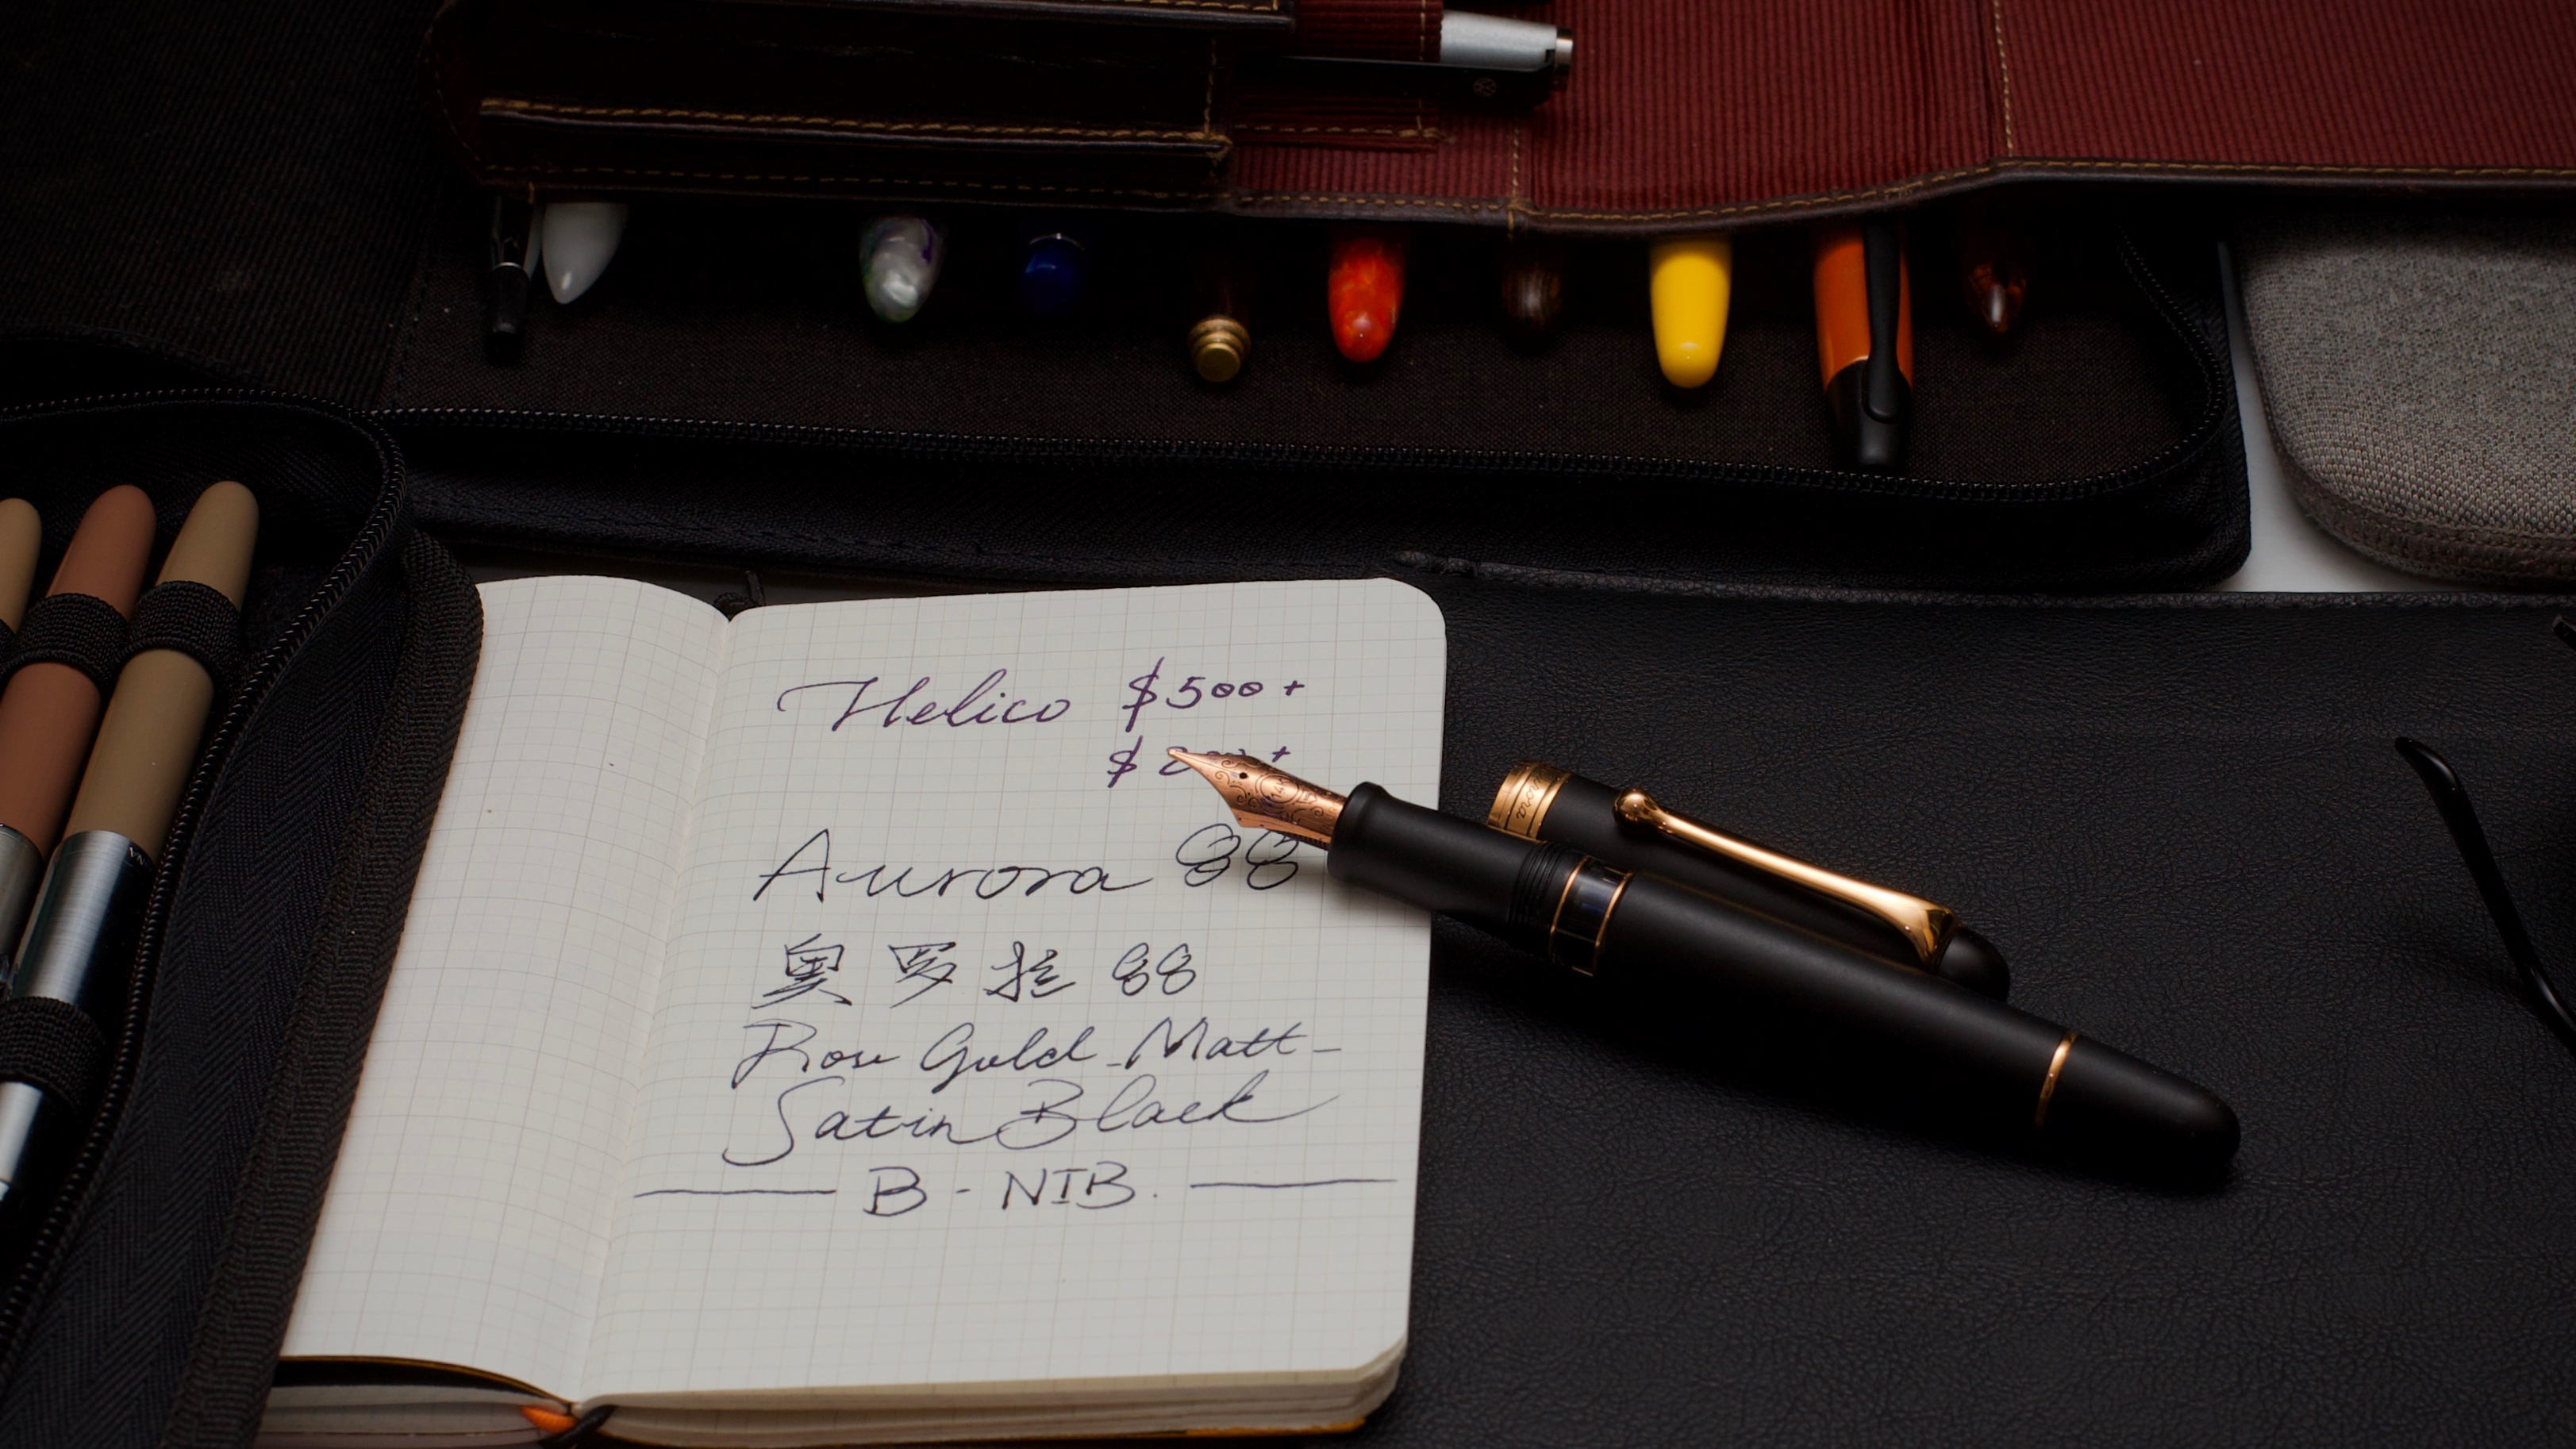 Helico $500+
$ +
Aurora 88
奥罗拉 88
Rose Gold - Matt -
Satin Black
B - NIB.